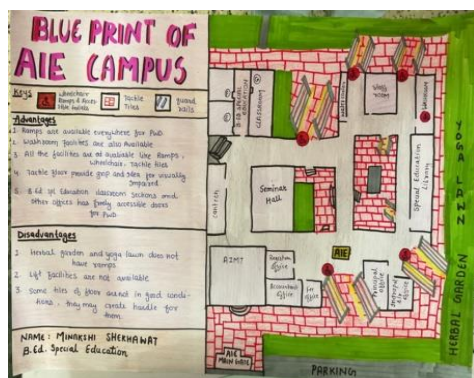 BLUE PRINT OF
AIE CAMPUS
Keys
Wheelchair
Ramps & Acces-
Tactile
Tiles
guard
rails
Advantages
1. Ramps are available everywhere for PwD
2. Washroom facilities are also Available
3. All the facilities are available like Ramps,
Wheelchair, Tactile tiles
4. Tactile floor provide grip and idea for visually
Impaired
5. B.Ed spl Education classroom sections and
other offices has fairly accessible doors
for PwD
Disadvantages
1. Herbal garden and yoga lawn does not
have ramps
2. Lift facilities are not available
3. Some tiles of floor are not in good condi-
tions, they may create hurdle for
them.
NAME: MINAKSHI SHEKHAWAT
B.Ed. Special Education
B.Ed SPECIAL
EDUCATION
CLASSROOM
Washroom
Special Education
Library
YOGA LAWN
HERBAL GARDEN
Canteen
Seminar
Hall
AIMT
office
Accountant
office
office
AIE
Principal
office
office
AIE
MAIN GATE
PARKING